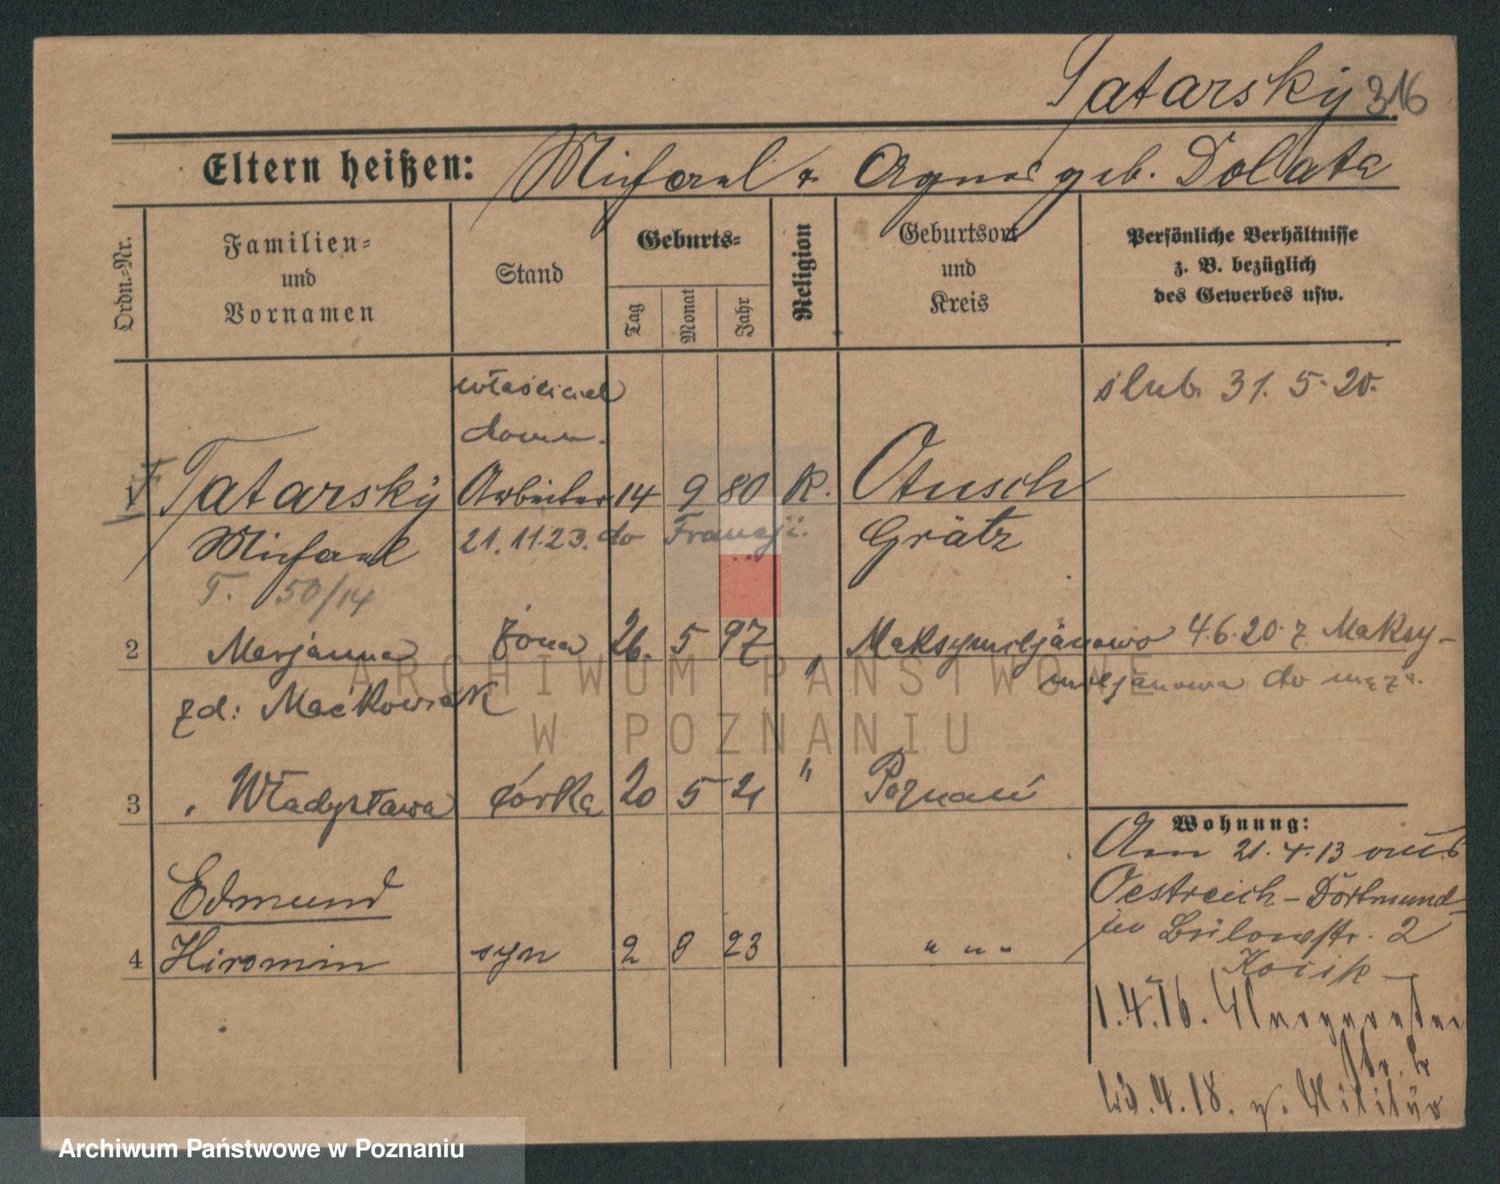 Tatarský 316
Eltern heißen: Michael & Agnes geb. Dolata
Ordn.-Nr.
Familien-
und
Vornamen
Stand
Geburts-
Tag
Monat
Jahr
Religion
Geburtsort
und
Kreis
Persönliche Verhältnisse
z. B. bezüglich
des Gewerbes usw.
właściciel
domu.
ślub. 31. 5. 20.
1 Tatarský Arbeiter 14 9 80 K. Otusch
Michael 21. 11. 23. do Francji. Grätz
T. 50/14
2 Marjanna żona 26. 5 97 " Maksymiljanowo 4.6.20 z Maksy-
miljanowa do męża.
zd: Maćkowiak
3 " Władysława córka 20 5 21 " Poznań
Wohnung:
Am 21. 4. 13 aus
Oestreich-Dortmund
in Bülowstr. 2
Edmund
4 Hieronim syn 2 9 23 " " "
1.4.16.
Str. 2
4. 18. z. Militär
ARCHIWUM PAŃSTWOWE
W POZNANIU
Archiwum Państwowe w Poznaniu